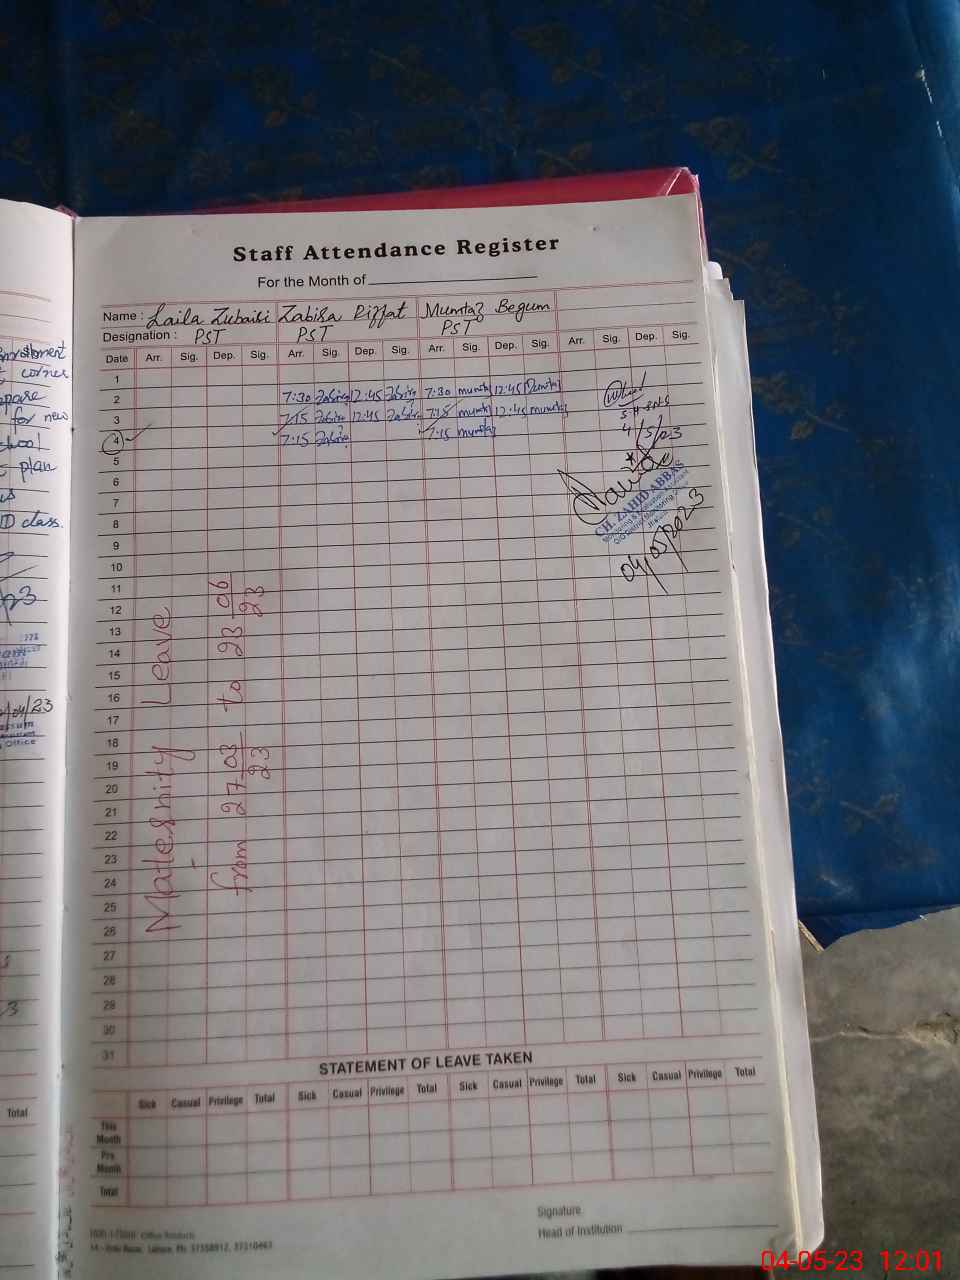 Staff Attendance Register
For the Month of
Name : Laila Zubairi Zabira Riffat Mumtaz Begum
Designation : PST PST PST
Date Arr. Sig. Dep. Sig. Arr. Sig. Dep. Sig. Arr. Sig. Dep. Sig. Arr. Sig. Dep. Sig.
1
2 7:30 Zabira 12:45 Zabira 7:30 mumtaz 12:45 mumtaz
3 7:15 Zabira 12:45 Zabira 7:15 mumtaz 12:45 mumtaz
4 7:15 Zabira 7:15 mumtaz
4/5/23
5
6
7
8
9
10
11
12
13
14
15
16
17
18
19
20
21
22
23
24
25
26
27
28
29
30
31
CH. ZAHID ABBAS
04/05/2023
Maternity Leave
from 27-03-23 to 23-06-23
STATEMENT OF LEAVE TAKEN
Sick Casual Privilege Total Sick Casual Privilege Total Sick Casual Privilege Total Sick Casual Privilege Total
This Month
Pre Month
Total
Signature
Head of Institution
corner
for new
plan
class.
/04/23
Office
Total
04-05-23 12:01